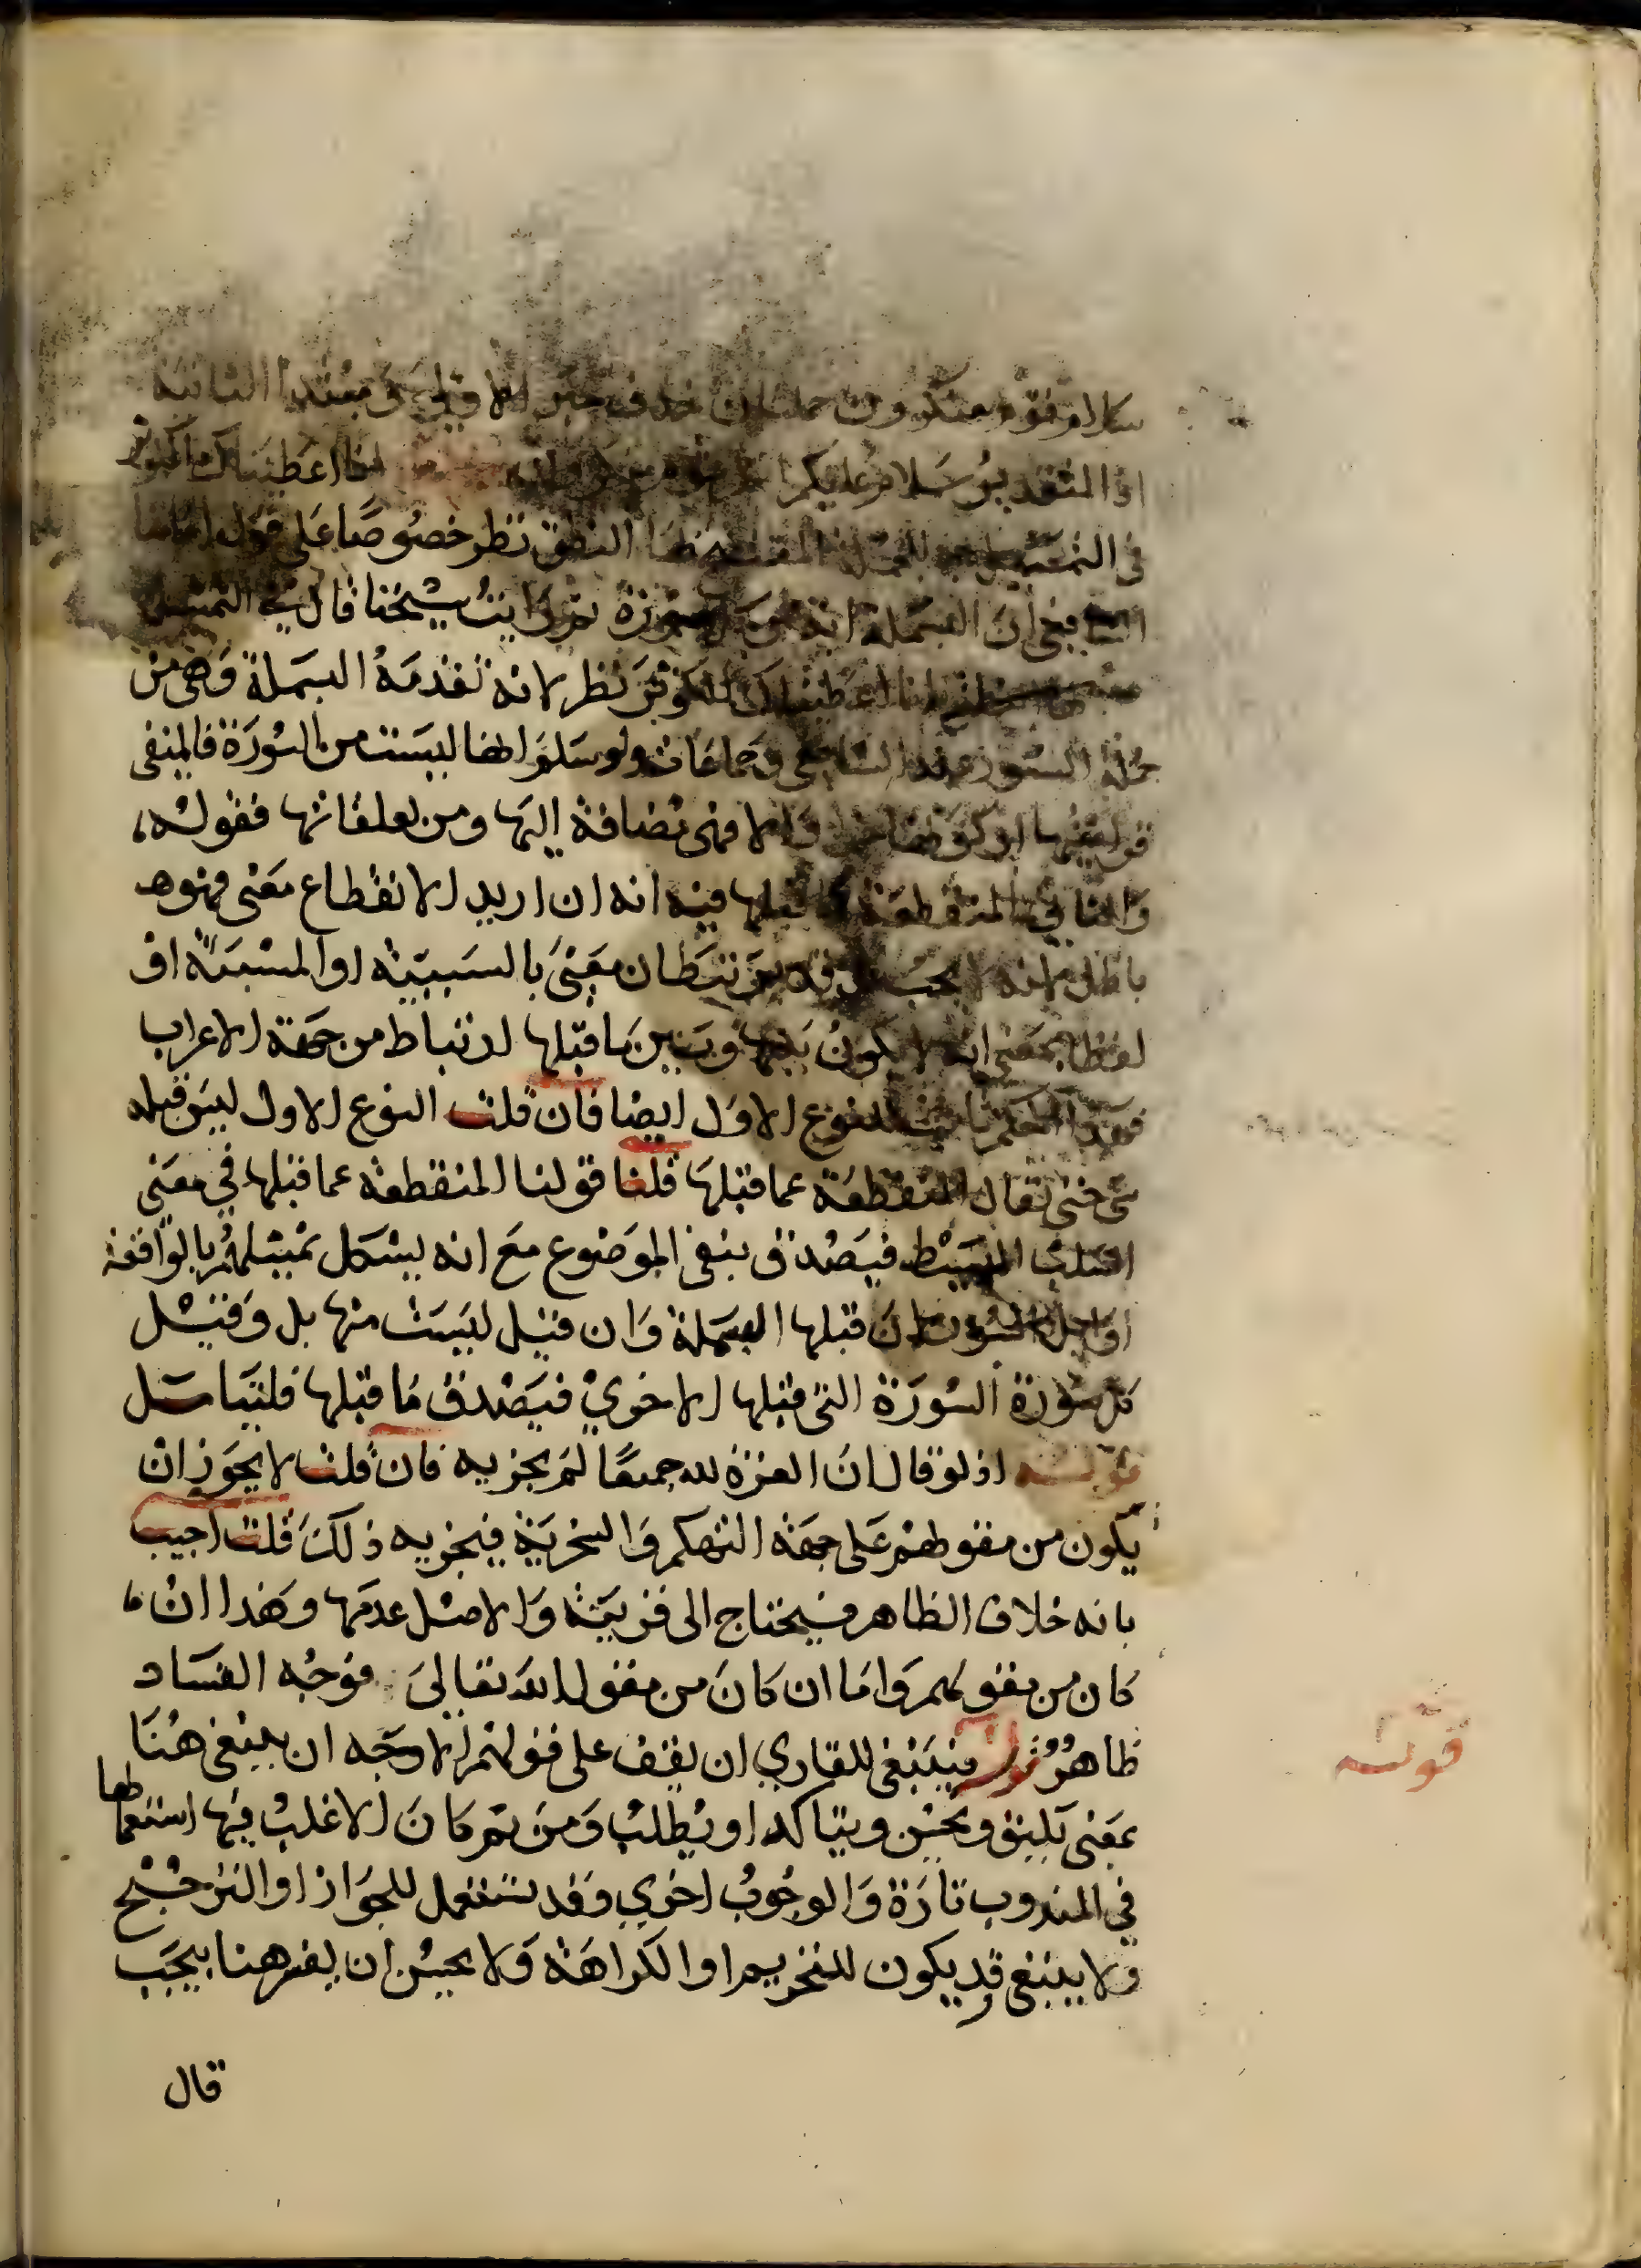 سلام قوم منكرون جملتان حذف خبر الاولى ومبتدا الثانية
اذ التقدير سلام عليكم انا اعطيناك الكوثر
في التمثيل به للجملة المفتتح بها النطق نظر خصوصًا على قول امامنا
الشافعي ان البسملة اية من كل سورة ثم رايت شيخنا قال في التمثيل
انا اعطيناك الكوثر نظر لانه تقدمه البسملة وهي من
جملة السورة عند الشافعي وجماعات ولو سلم انها ليست من السورة فالمنفي
والا فهي مضافة اليها ومن تعلقاتها فقوله،
والثاني المنقطعة عما قبلها فيه انه ان اريد الانقطاع معنى فهو
باطل لانه لا يجب بل قد يرتبطان معنى بالسببية او المسببية او
لفظا بمعنى انه لا يكون بينها وبين ما قبلها ارتباط من جهة الاعراب
فهذا الحكم ثابت للنوع الاول ايضا فان قلت النوع الاول ليس قبله
شي حتى يقال المنقطعة عما قبلها قلنا قولنا المنقطعة عما قبلها في معنى
السلب البسيط فيصدق بنفي الموضوع مع انه يشكل تمثيلهم بالواقعة
اوايل السور فان قبلها البسملة وان قيل ليست منها بل وقبل
كل سورة السورة التي قبلها الاخري فيصدق ما قبلها فليتامل
قوله اذ لو قال ان العزة لله جميعًا لم يحزنه فان قلت لا يجوز ان
يكون من مقولهم على جهة التهكم والسخرية فيحزنه ذلك قلت اجيب
بانه خلاف الظاهر فيحتاج الى قرينة والاصل عدمها وهذا ان
كان من مقولهم واما ان كان من مقول الله تعالى فوجه الفساد
ظاهر قوله فينبغي للقاري ان يقف على قولهم الاوجه ان ينبغي هنا
بمعنى يليق ويحسن ويتاكد او يطلب ومن ثم كان الاغلب فيها استعمالها
في المندوب تارة والوجوب اخري وقد تستعمل للجواز او الترجيح
ولا ينبغي قد يكون للتحريم او الكراهة ولا يحسن ان يفسر هنا بيجب
قوله
قال